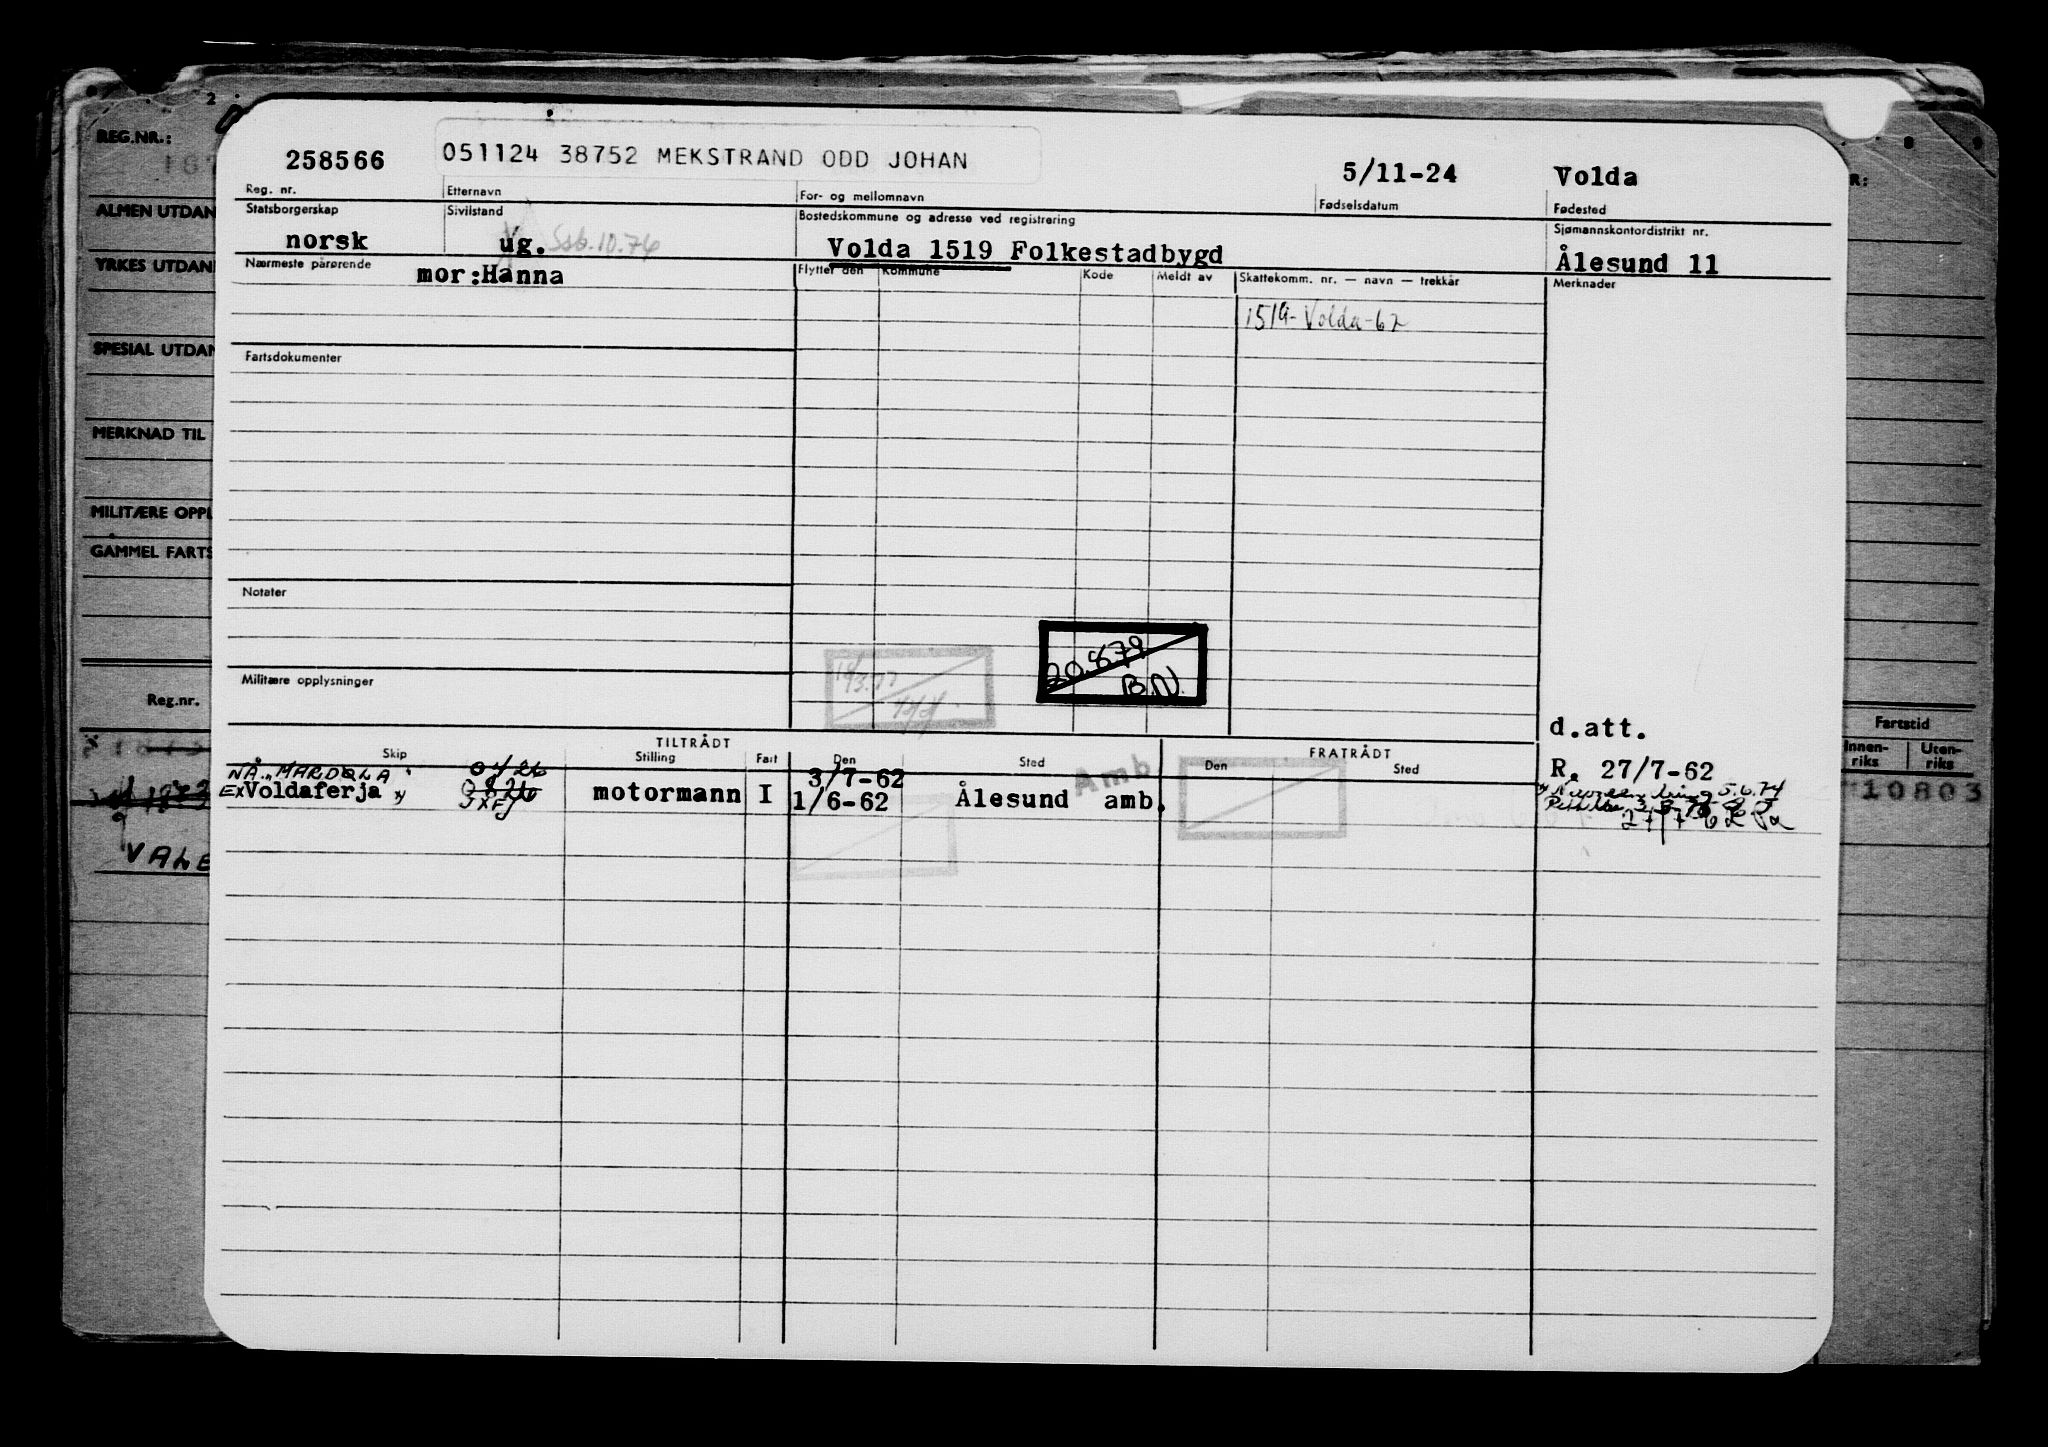 2
8
9
REG.NR.:
ALMEN UTDAN
YRKES UTDAN
SPESIAL UTDAN
MERKNAD TIL
MILITÆRE OPPL
GAMMEL FARTS
Reg.nr.
VALE
R:
Fartstid
Innen-riks Uten-riks
10803
258566 051124 38752 MEKSTRAND ODD JOHAN 5/11-24 Volda
Reg. nr. Etternavn For- og mellomnavn Fødselsdatum Fødested
Statsborgerskap Sivilstand Bostedskommune og adresse ved registrering Sjømannskontordistrikt nr.
norsk ug. Ssb.10.76 Volda 1519 Folkestadbygd Ålesund 11
Nærmeste pårørende mor:Hanna Flyttet den Kommune Kode Meldt av Skattekomm. nr. — navn — trekkår Merknader
1519-Volda-62
Fartsdokumenter
Notater
20.8.79
B.N.
Militære opplysninger
d.att.
TILTRÅDT FRATRÅDT
Skip Stilling Fart Den Sted Den Sted
R. 27/7-62
NÅ "MARDØLA" 0426 3/7-62 Amb
EX Voldaferja JXFJ motormann I 1/6-62 Ålesund amb.
5.6.74
27/7-62